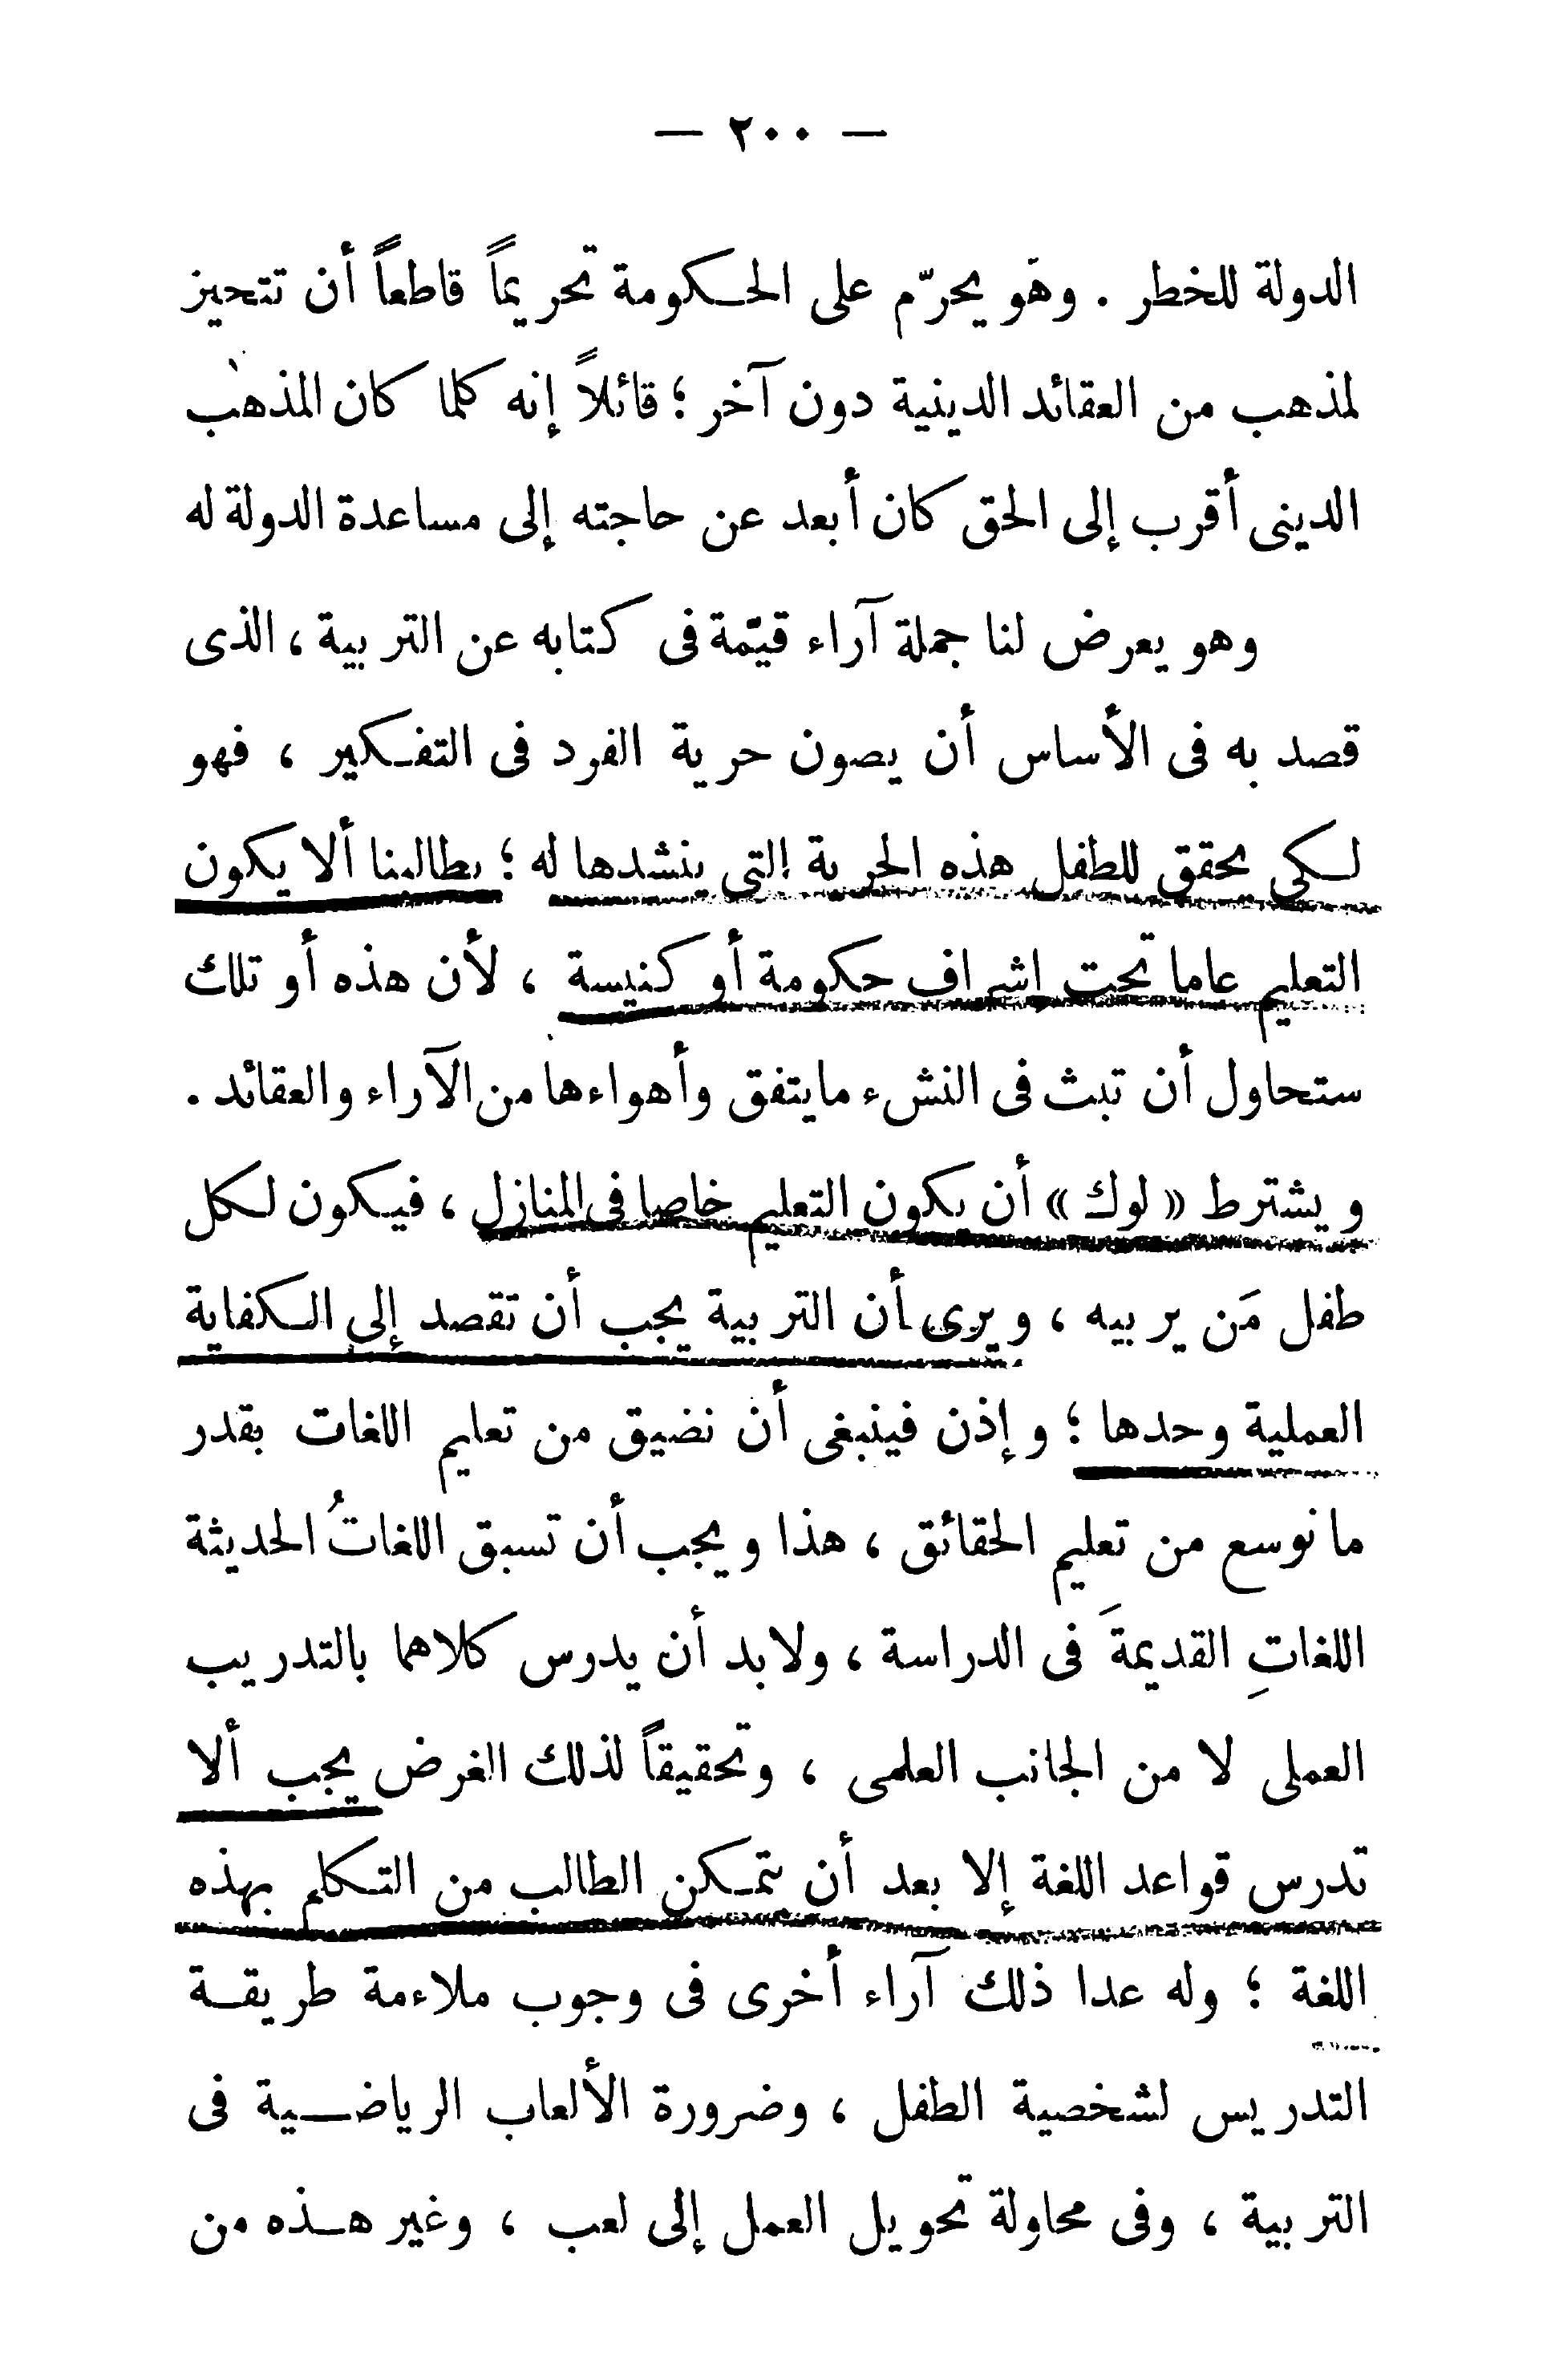 — ٢٠٠ —
الدولة للخطر . وهَو يحرّم على الحكومة تحريماً قاطعاً أن تتحيز
لمذهب من العقائد الدينية دون آخر ؛ قائلاً إنه كلما كان المذهب
الدينى أقرب إلى الحق كان أبعد عن حاجته إلى مساعدة الدولة له
وهو يعرض لنا جملة آراء قيّمة فى كتابه عن التربية ، الذى
قصد به فى الأساس أن يصون حرية الفرد فى التفكير ، فهو
لكى يحقق للطفل هذه الحرية التى ينشدها له ؛ يطالبنا ألا يكون
التعليم عاما تحت إشراف حكومة أو كنيسة ، لأن هذه أو تلك
ستحاول أن تبث فى النشء مايتفق وأهواءها من الآراء والعقائد .
ويشترط « لوك » أن يكون التعليم خاصا فى المنازل ، فيكون لكل
طفل مَن يربيه ، ويرى أن التربية يجب أن تقصد إلى الكفاية
العملية وحدها ؛ وإذن فينبغى أن نضيق من تعليم اللغات بقدر
ما نوسع من تعليم الحقائق ، هذا ويجب أن تسبق اللغاتُ الحديثة
اللغاتِ القديمةَ فى الدراسة ، ولابد أن يدرس كلاهما بالتدريب
العملى لا من الجانب العلمى ، وتحقيقاً لذلك الغرض يجب ألا
تدرس قواعد اللغة إلا بعد أن يتمكن الطالب من التكلم بهذه
اللغة ؛ وله عدا ذلك آراء أخرى فى وجوب ملاءمة طريقة
التدريس لشخصية الطفل ، وضرورة الألعاب الرياضية فى
التربية ، وفى محاولة تحويل العمل إلى لعب ، وغير هذه من